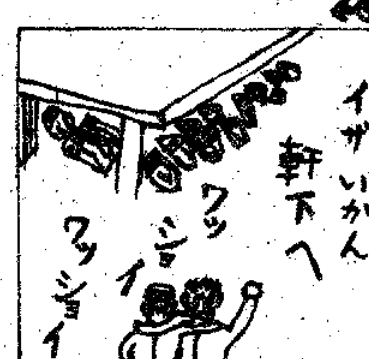 イザいかん
軒下へ
ワッショイ
ワッショイ